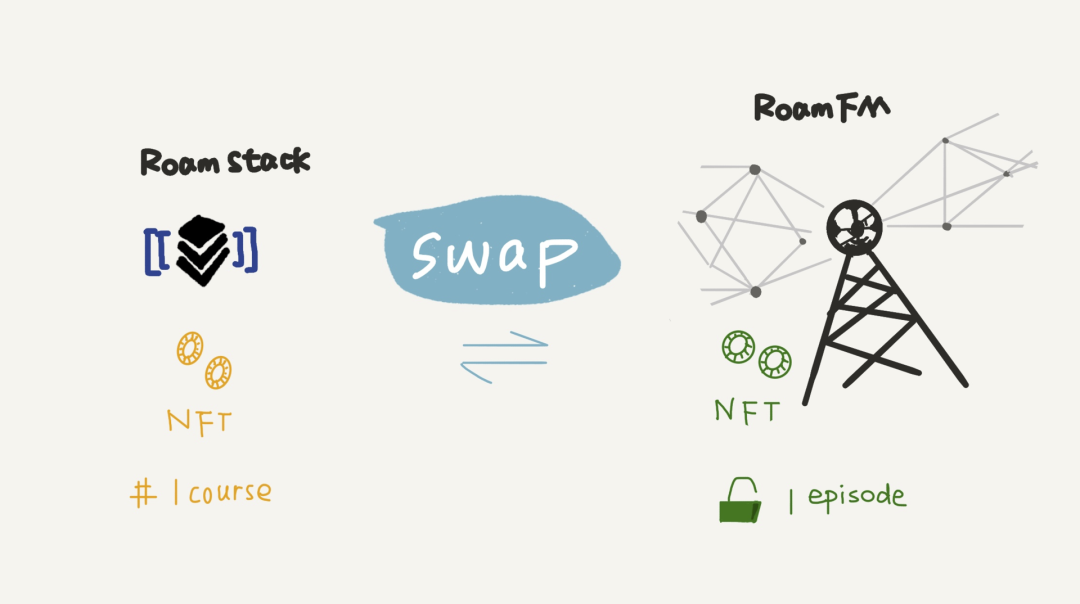 Roam stack
[[ ]]
NFT
# 1 course
swap
Roam FM
NFT
1 episode